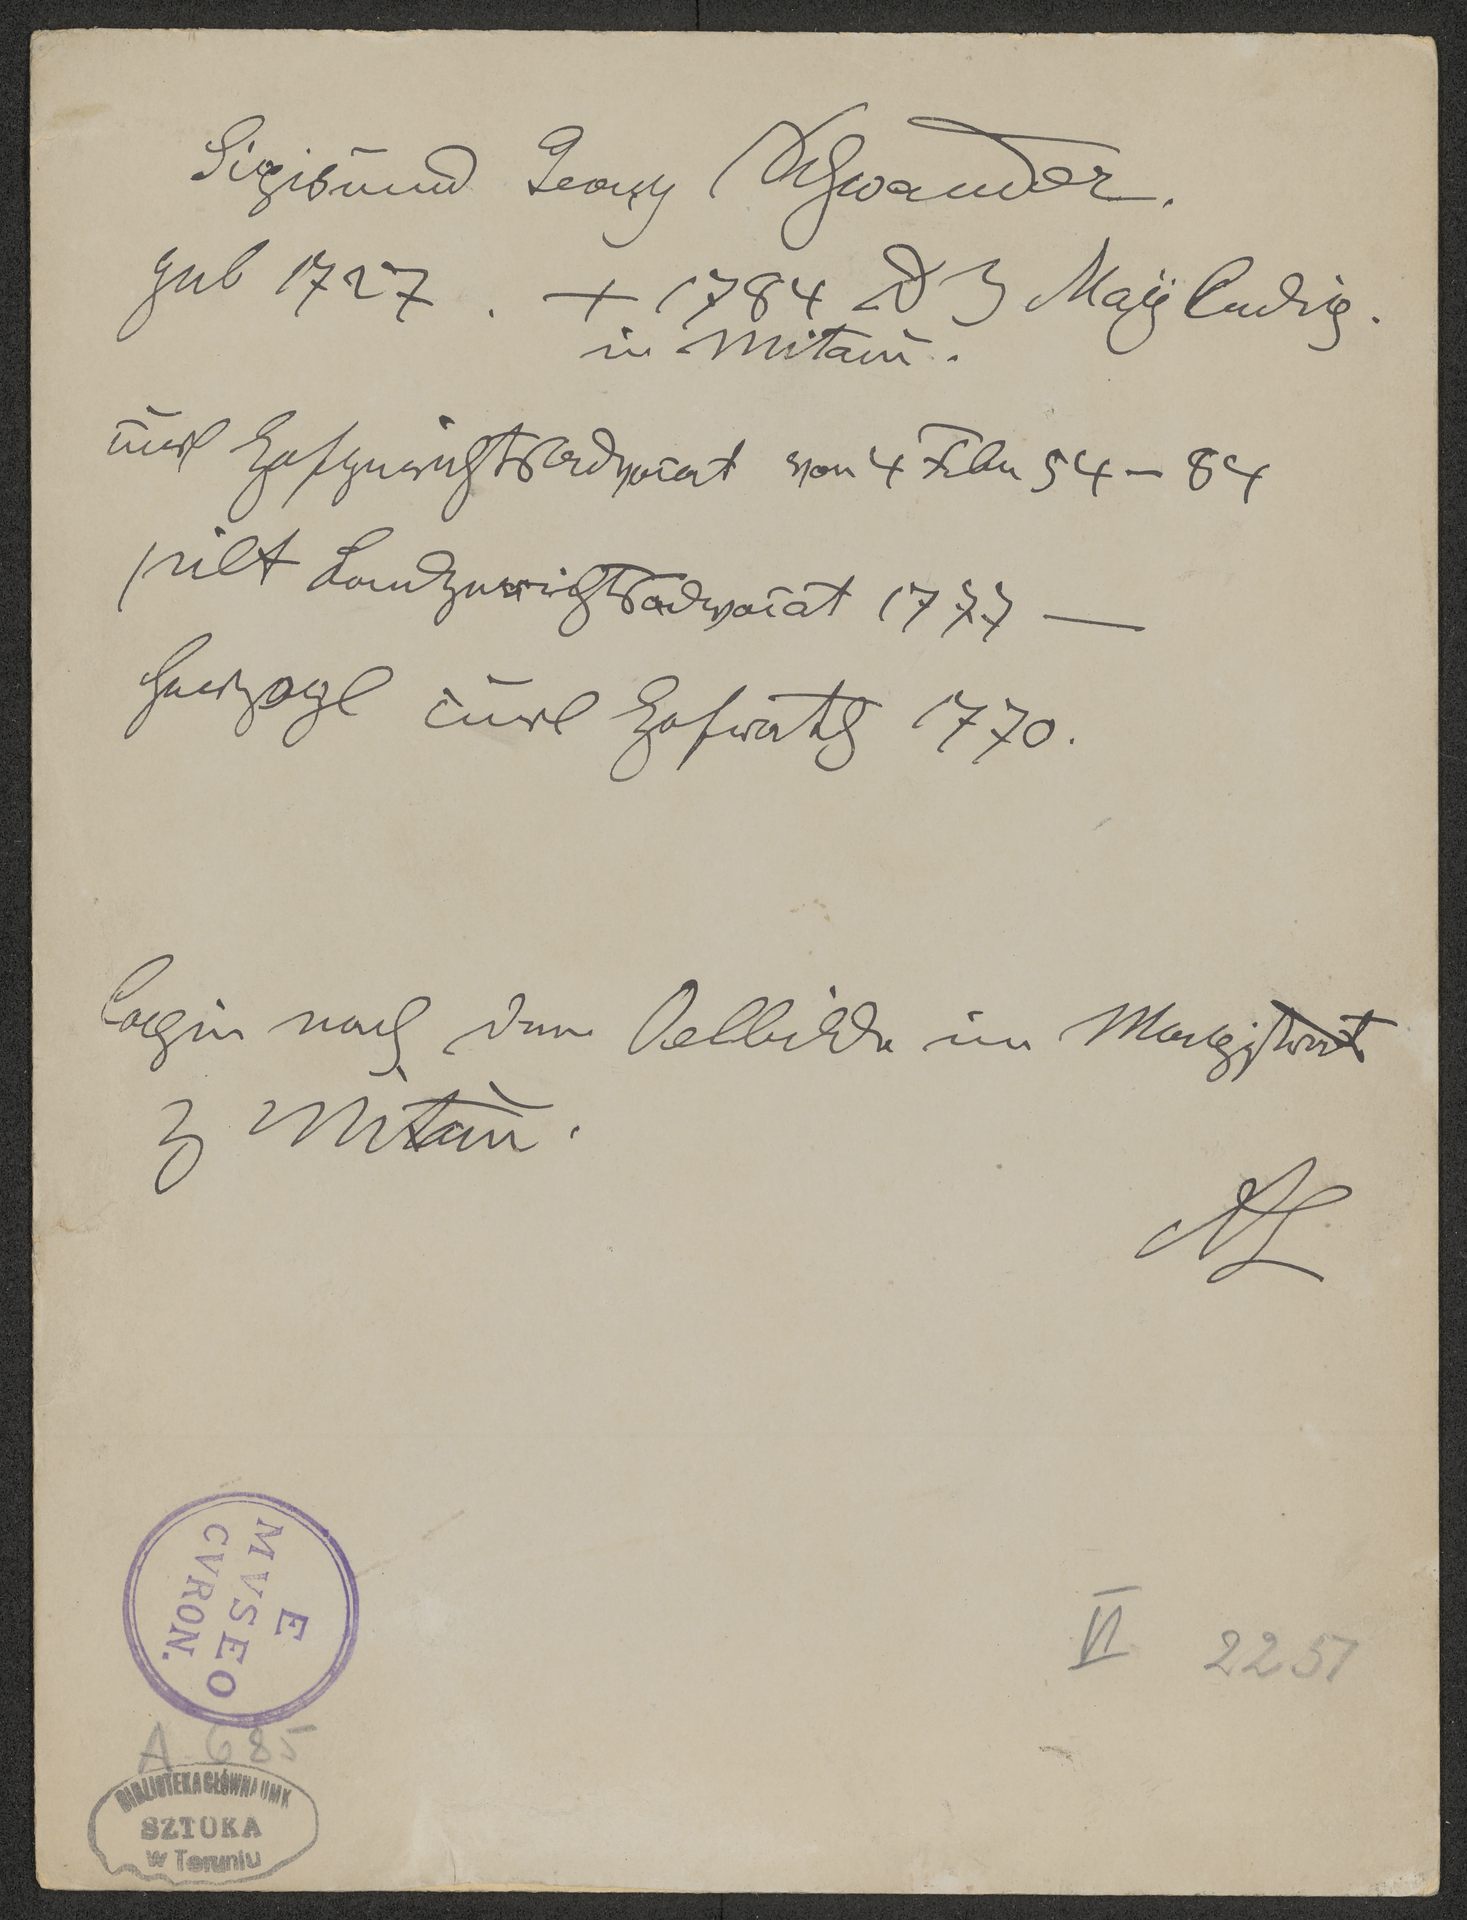 Sigismund Georg Schwander.
geb 1727. + 1784 D 3 May ledig.
in Mitau.
curl Hofgerichtsadvocat von 4 Febr 54–84
pilt Landgerichtsadvocat 1777 —
herzogl curl Hofrath 1770.
Copie nach dem Oelbilde im Magistrat
z Mitau.
E
MVSEO
CVRON.
VI 2251
A 685
BIBLIOTEKA GŁÓWNA UMK
SZTUKA
w Toruniu